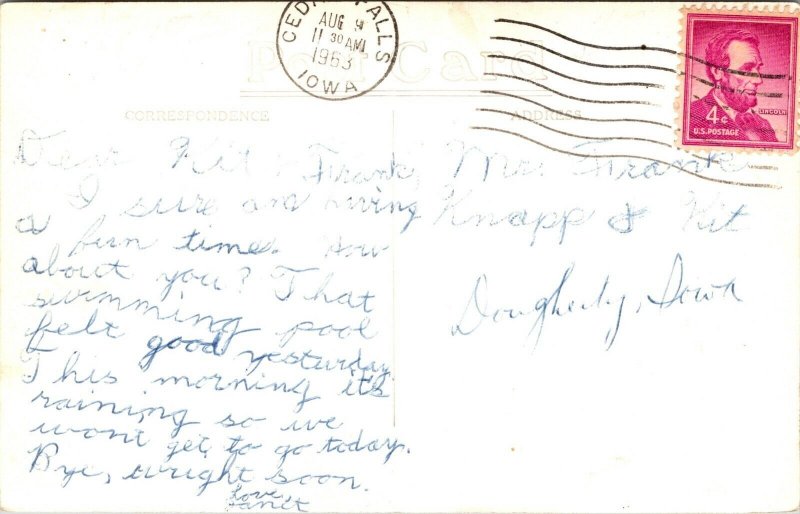 CEDAR FALLS
AUG 9
11 30 AM
1963
IOWA
4¢
LINCOLN
U.S. POSTAGE
Post Card
CORRESPONDENCE
ADDRESS
Dear Kit, Frank,
I sure am having
a fun time. How
about you? That
swimming pool
felt good yesterday.
This morning it's
raining so we
wont get to go today.
Bye, wright soon.
Love,
Janet
Mr. Frank
Knapp & Kit
Dougherty, Iowa